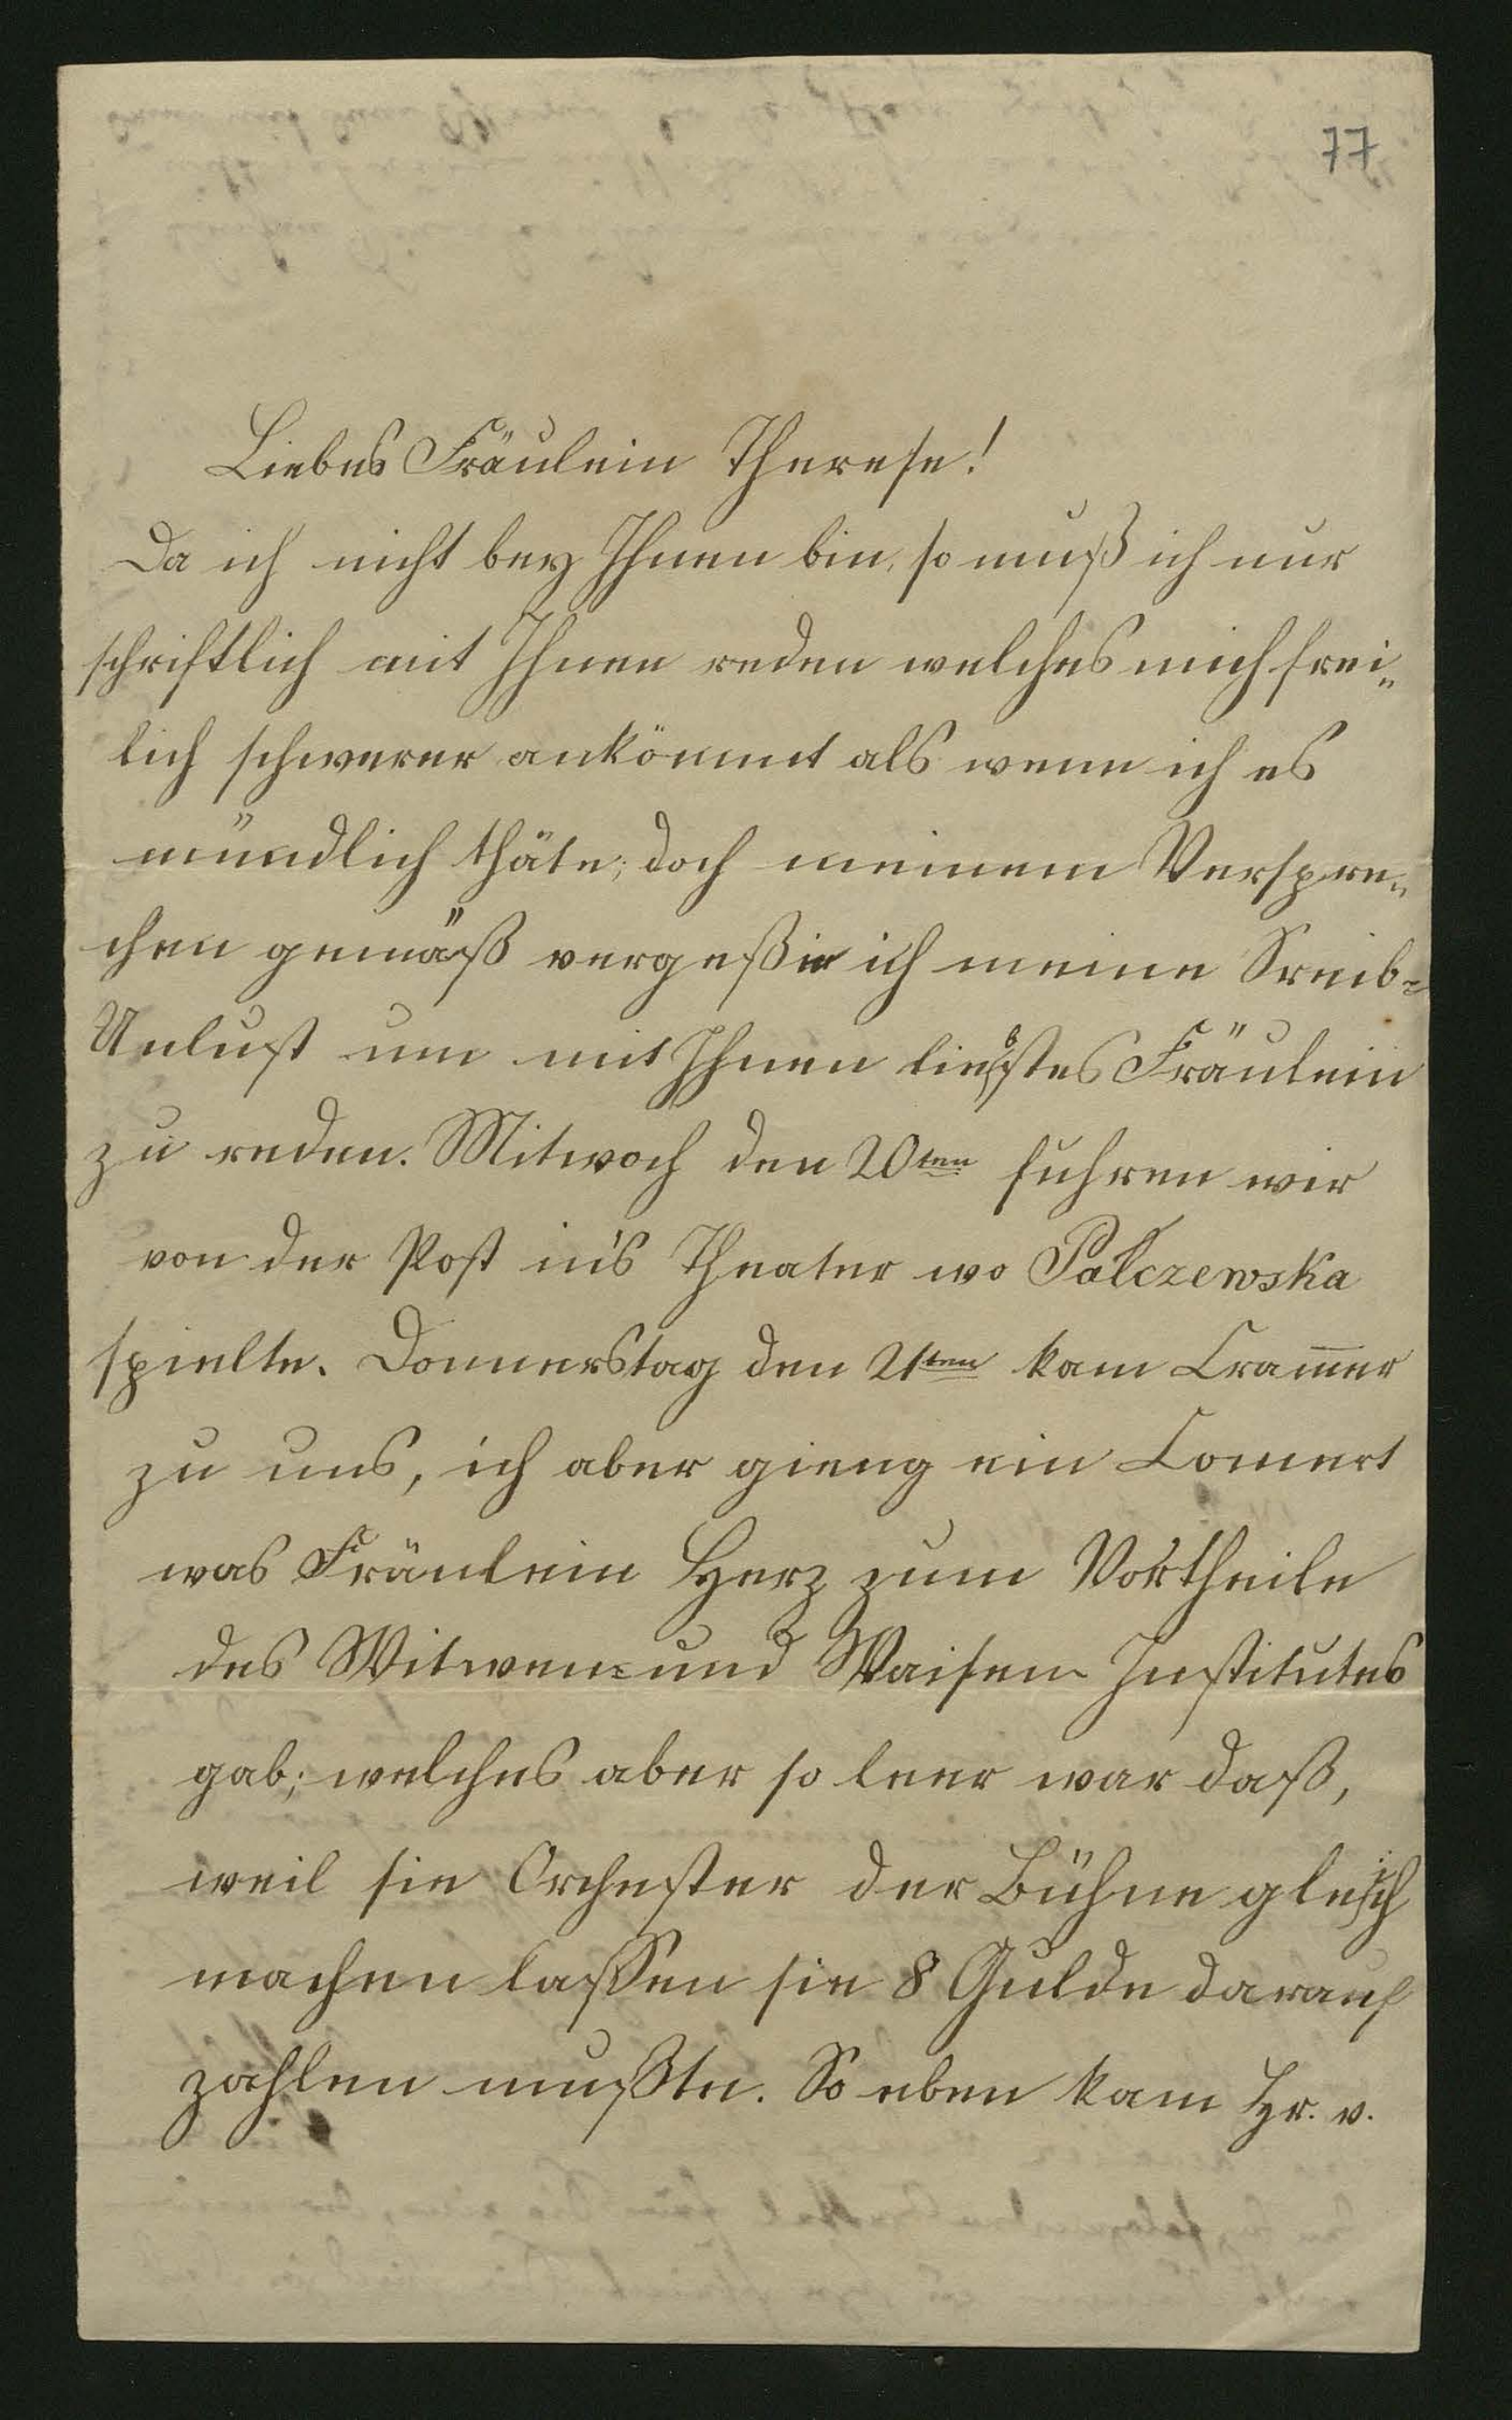 77
Liebes Fräulein Therese!
Da ich nicht bey Ihnen bin, so muß ich nur
schriftlich mit Ihnen reden welches mich frei„
lich schwerer ankömmt als wenn ich es
mündlich thäte; doch meinem Verspre„
chen gemäß vergeße ich meine Sreib-
Unlust um mit Ihnen liebstes Fräulein
zu reden. Mitwoch den 20ten fuhren wir
von der Post in's Theater wo Palczewska
spielte. Donnerstag den 21ten kam Cram̅er
zu uns, ich aber gieng ein Concert
was Fräulein Herz zum Vortheile
des Witwen- und Waisen Institutes
gab; welches aber so leer war daß,
weil sie Orchester der Bühne gleich
machen lassen sie 8 Gulde darauf
zahlen mußte. So eben kam Hr. v.